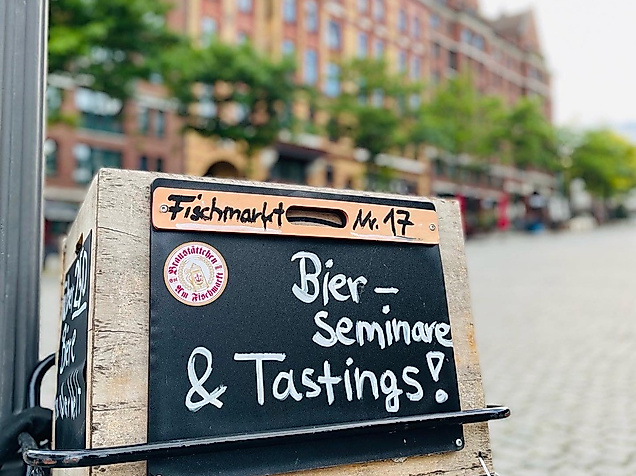 Fischmarkt Nr. 17
Braustättchen
Am Fischmarkt
Bier-
Seminare
& Tastings!